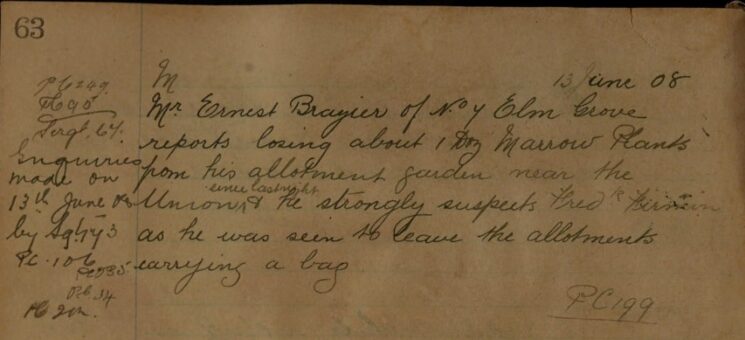 63
M
13 June 08
Mr Ernest Brazier of No 4 Elm Grove
reports losing about 1 Doz Marrow Plants
from his allotment garden near the
since last night
Union & he strongly suspects Fredk
as he was seen to leave the allotments
carrying a bag
PC 199
PC 249
Sergt. 64.
Enquiries
made on
13th June 08
by Sgt
PC. 106
PC 34